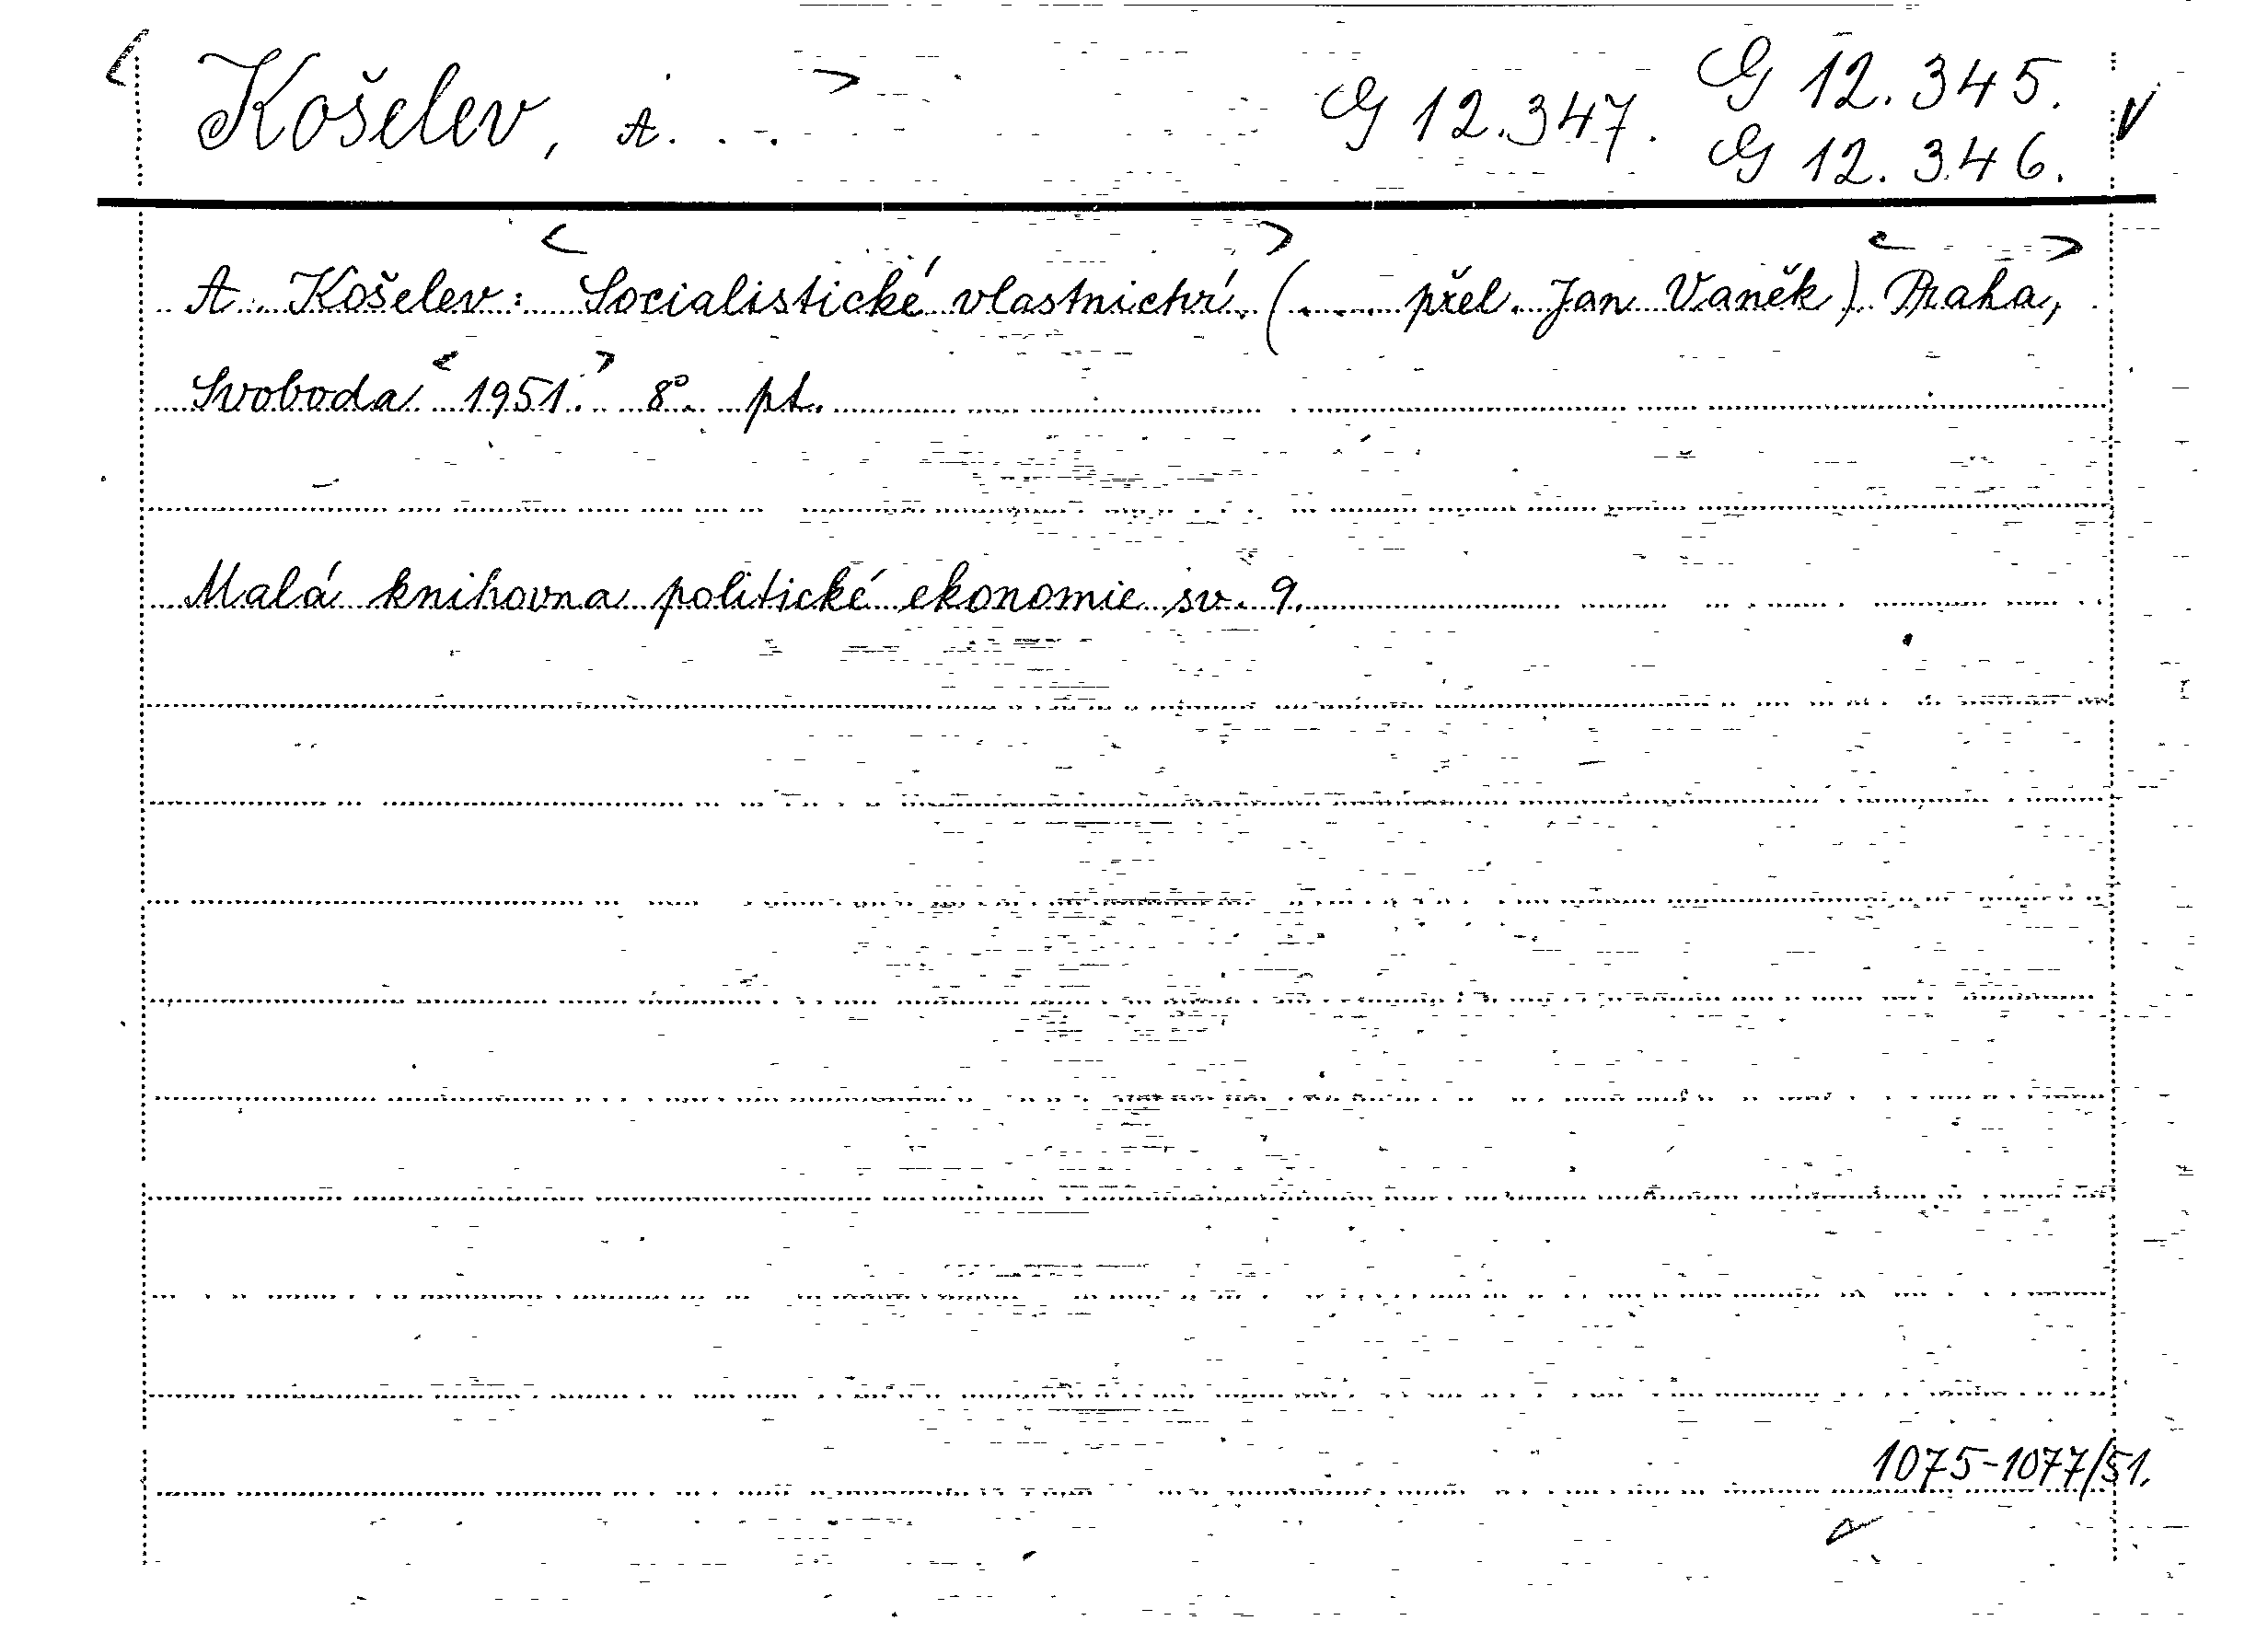 < Košelev, A. . . > G 12.347. G 12.345. V
G 12.346.
A. Košelev: <Socialistické vlastnictví.> (... přel. Jan Vaněk) <Praha,>
Svoboda <1951.> 8°. pt.
Malá knihovna politické ekonomie sv. 9.
1075-1077/51.